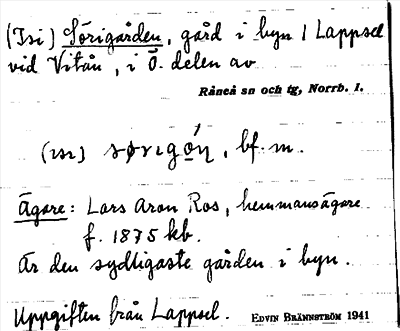 (Isi) Sörigården, gård i byn 1 Lappsel
vid Vitån, i Ö. delen av
Råneå sn och tg, Norrb. l.
(ısı) sørıgǫ́ɳ, bf. m.
Ägare: Lars Aron Ros, hemmansägare
f. 1875 kb.
Är den sydligaste gården i byn.
Uppgiften från Lappsel. EDVIN BRÄNNSTRÖM 1941